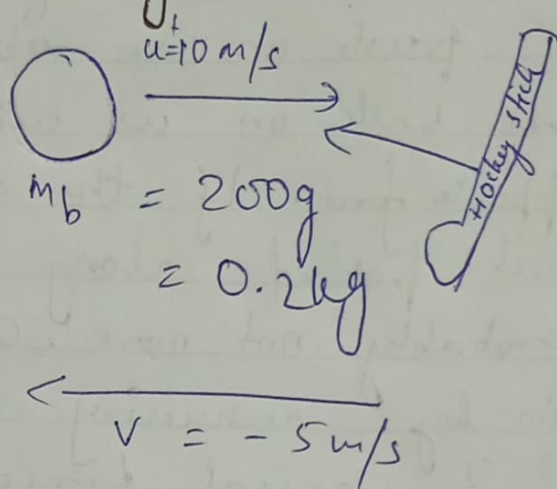 u=10 m/s
Hockey stick
mb = 200g
= 0.2kg
v = - 5m/s